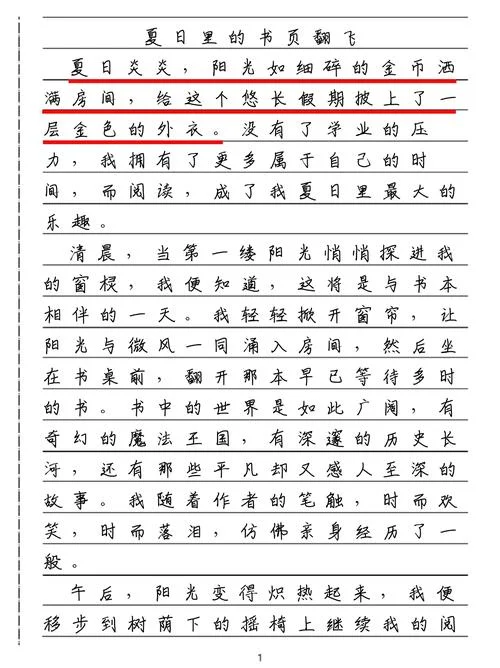 夏日里的书页翻飞
夏日炎炎，阳光如细碎的金币洒
满房间，给这个悠长假期披上了一
层金色的外衣。没有了学业的压
力，我拥有了更多属于自己的时
间，而阅读，成了我夏日里最大的
乐趣。
清晨，当第一缕阳光悄悄探进我
的窗棂，我便知道，这将是与书本
相伴的一天。我轻轻掀开窗帘，让
阳光与微风一同涌入房间，然后坐
在书桌前，翻开那本早已等待多时
的书。书中的世界是如此广阔，有
奇幻的魔法王国，有深邃的历史长
河，还有那些平凡却又感人至深的
故事。我随着作者的笔触，时而欢
笑，时而落泪，仿佛亲身经历了一
般。
午后，阳光变得炽热起来，我便
移步到树荫下的摇椅上继续我的阅
1